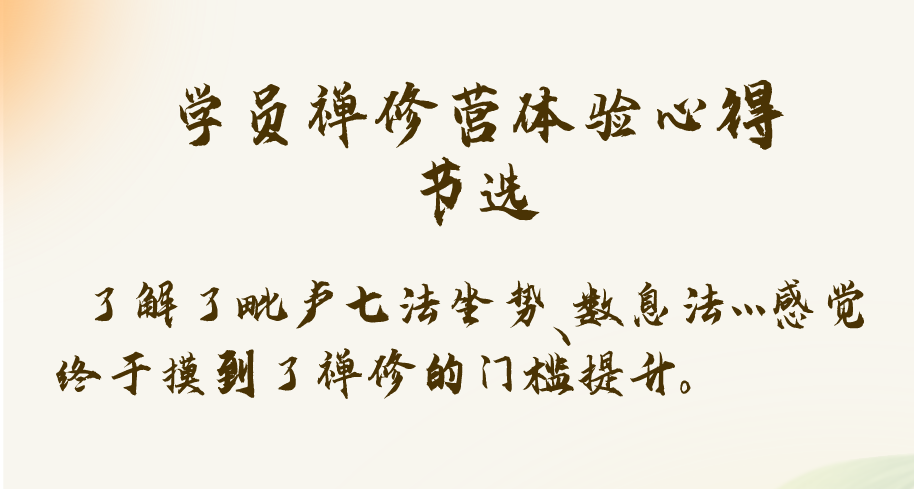 学员禅修营体验心得
节选
了解了毗卢七法坐势、数息法…感觉
终于摸到了禅修的门槛提升。